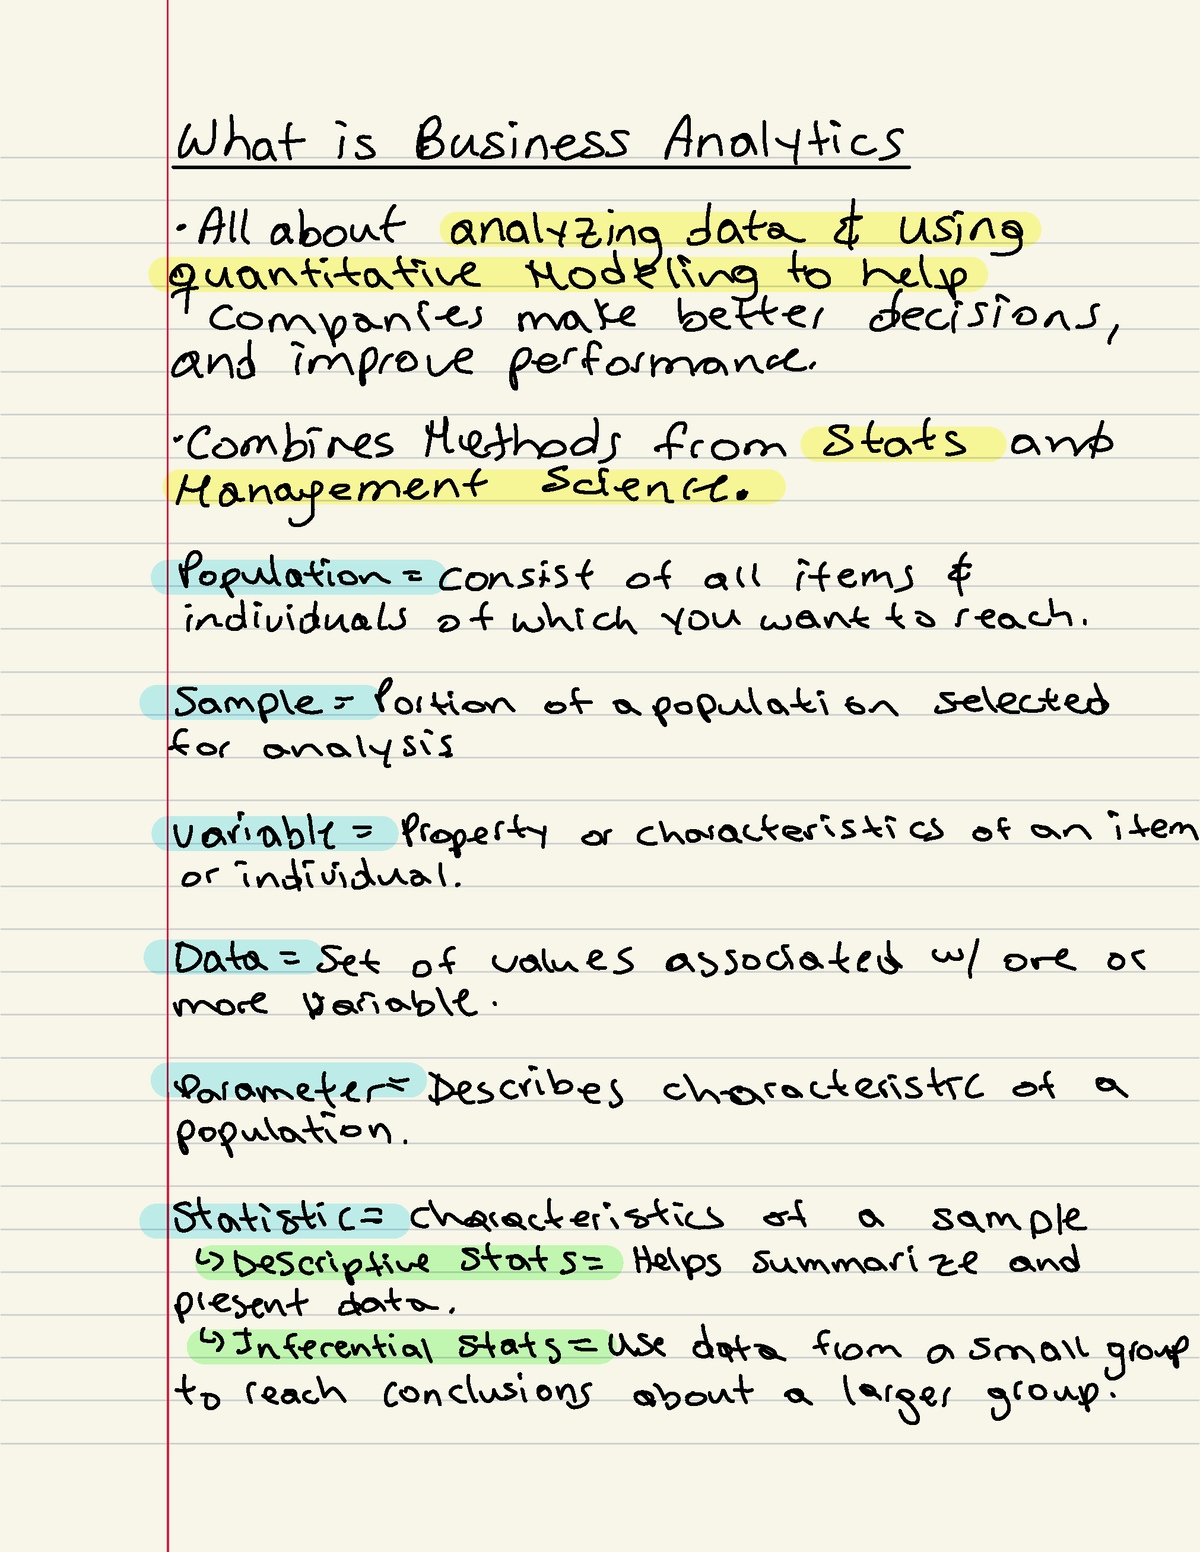 What is Business Analytics
· All about analyzing data & using
quantitative Modeling to help
companies make better decisions,
and improve performance.
· Combines Methods from Stats and
Management Science.
Population = consist of all items &
individuals of which you want to reach.
Sample = Portion of a population selected
for analysis
Variable = Property or characteristics of an item
or individual.
Data = Set of values associated w/ one or
more variable.
Parameter = Describes characteristic of a
population.
Statistic = characteristics of a sample
↳ Descriptive Stats = Helps summarize and
present data.
↳ Inferential Stats = Use data from a small group
to reach conclusions about a larger group.